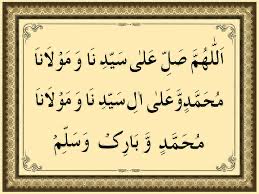 اَللّٰهُمَّ صَلِّ عَلٰى سَيِّدِ نَا وَ مَوْلَانَا
مُحَمَّدٍ وَّ عَلٰى اٰلِ سَيِّدِ نَا وَ مَوْلَانَا
مُحَمَّدٍ وَّ بَارِكْ وَسَلِّمْ